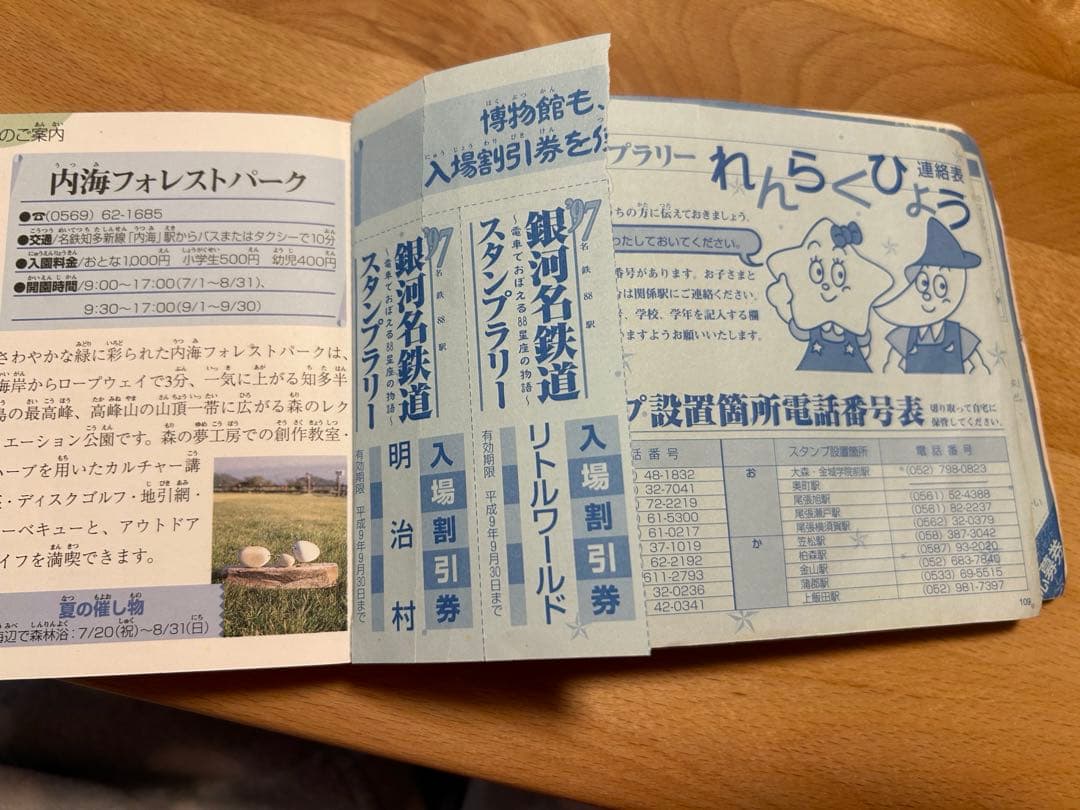 のご案内
内海フォレストパーク
●☎(0569) 62-1685
●交通/名鉄知多新線「内海」駅からバスまたはタクシーで10分
●入園料金/おとな1,000円 小学生500円 幼児400円
●開園時間/9:00〜17:00(7/1〜8/31)、
9:30〜17:00(9/1〜9/30)
さわやかな緑に彩られた内海フォレストパークは、
海岸からロープウェイで3分、一気に上がる知多半
島の最高峰、高峰山の山頂一帯に広がる森のレク
エーション公園です。森の夢工房での創作教室・
ハーブを用いたカルチャー講
・ディスクゴルフ・地引網・
ーベキューと、アウトドア
イフを満喫できます。
夏の催し物
海辺で森林浴:7/20(祝)〜8/31(日)
博物館も、
入場割引券を
'97
名鉄88駅
銀河名鉄道
〜電車でおぼえる88星座の物語〜
スタンプラリー
入場割引券
リトルワールド
有効期限 平成9年9月30日まで
'97
名鉄88駅
銀河名鉄道
〜電車でおぼえる88星座の物語〜
スタンプラリー
入場割引券
明治村
有効期限 平成9年9月30日まで
プラリー
れんらくひょう
連絡表
ちの方に伝えておきましょう。
ったしておいてください。
番号があります。お子さまと
は関係駅にご連絡ください。
、学校、学年を記入する欄
いますようお願いいたします。
プ設置箇所電話番号表
切り取って自宅に
保管してください。
話番号 スタンプ設置箇所 電話番号
48-1832 お 大森・金城学院前駅 (052) 798-0823
32-7041 奥町駅
72-2219 尾張旭駅 (0561) 52-4388
61-5300 尾張瀬戸駅 (0561) 82-2237
61-0217 尾張横須賀駅 (0562) 32-0379
37-1019 か 笠松駅 (058) 387-3042
62-2192 柏森駅 (0587) 93-2020
611-2793 金山駅 (052) 683-7840
32-0236 蒲郡駅 (0533) 69-5515
42-0341 上飯田駅 (052) 981-7397
109
募券